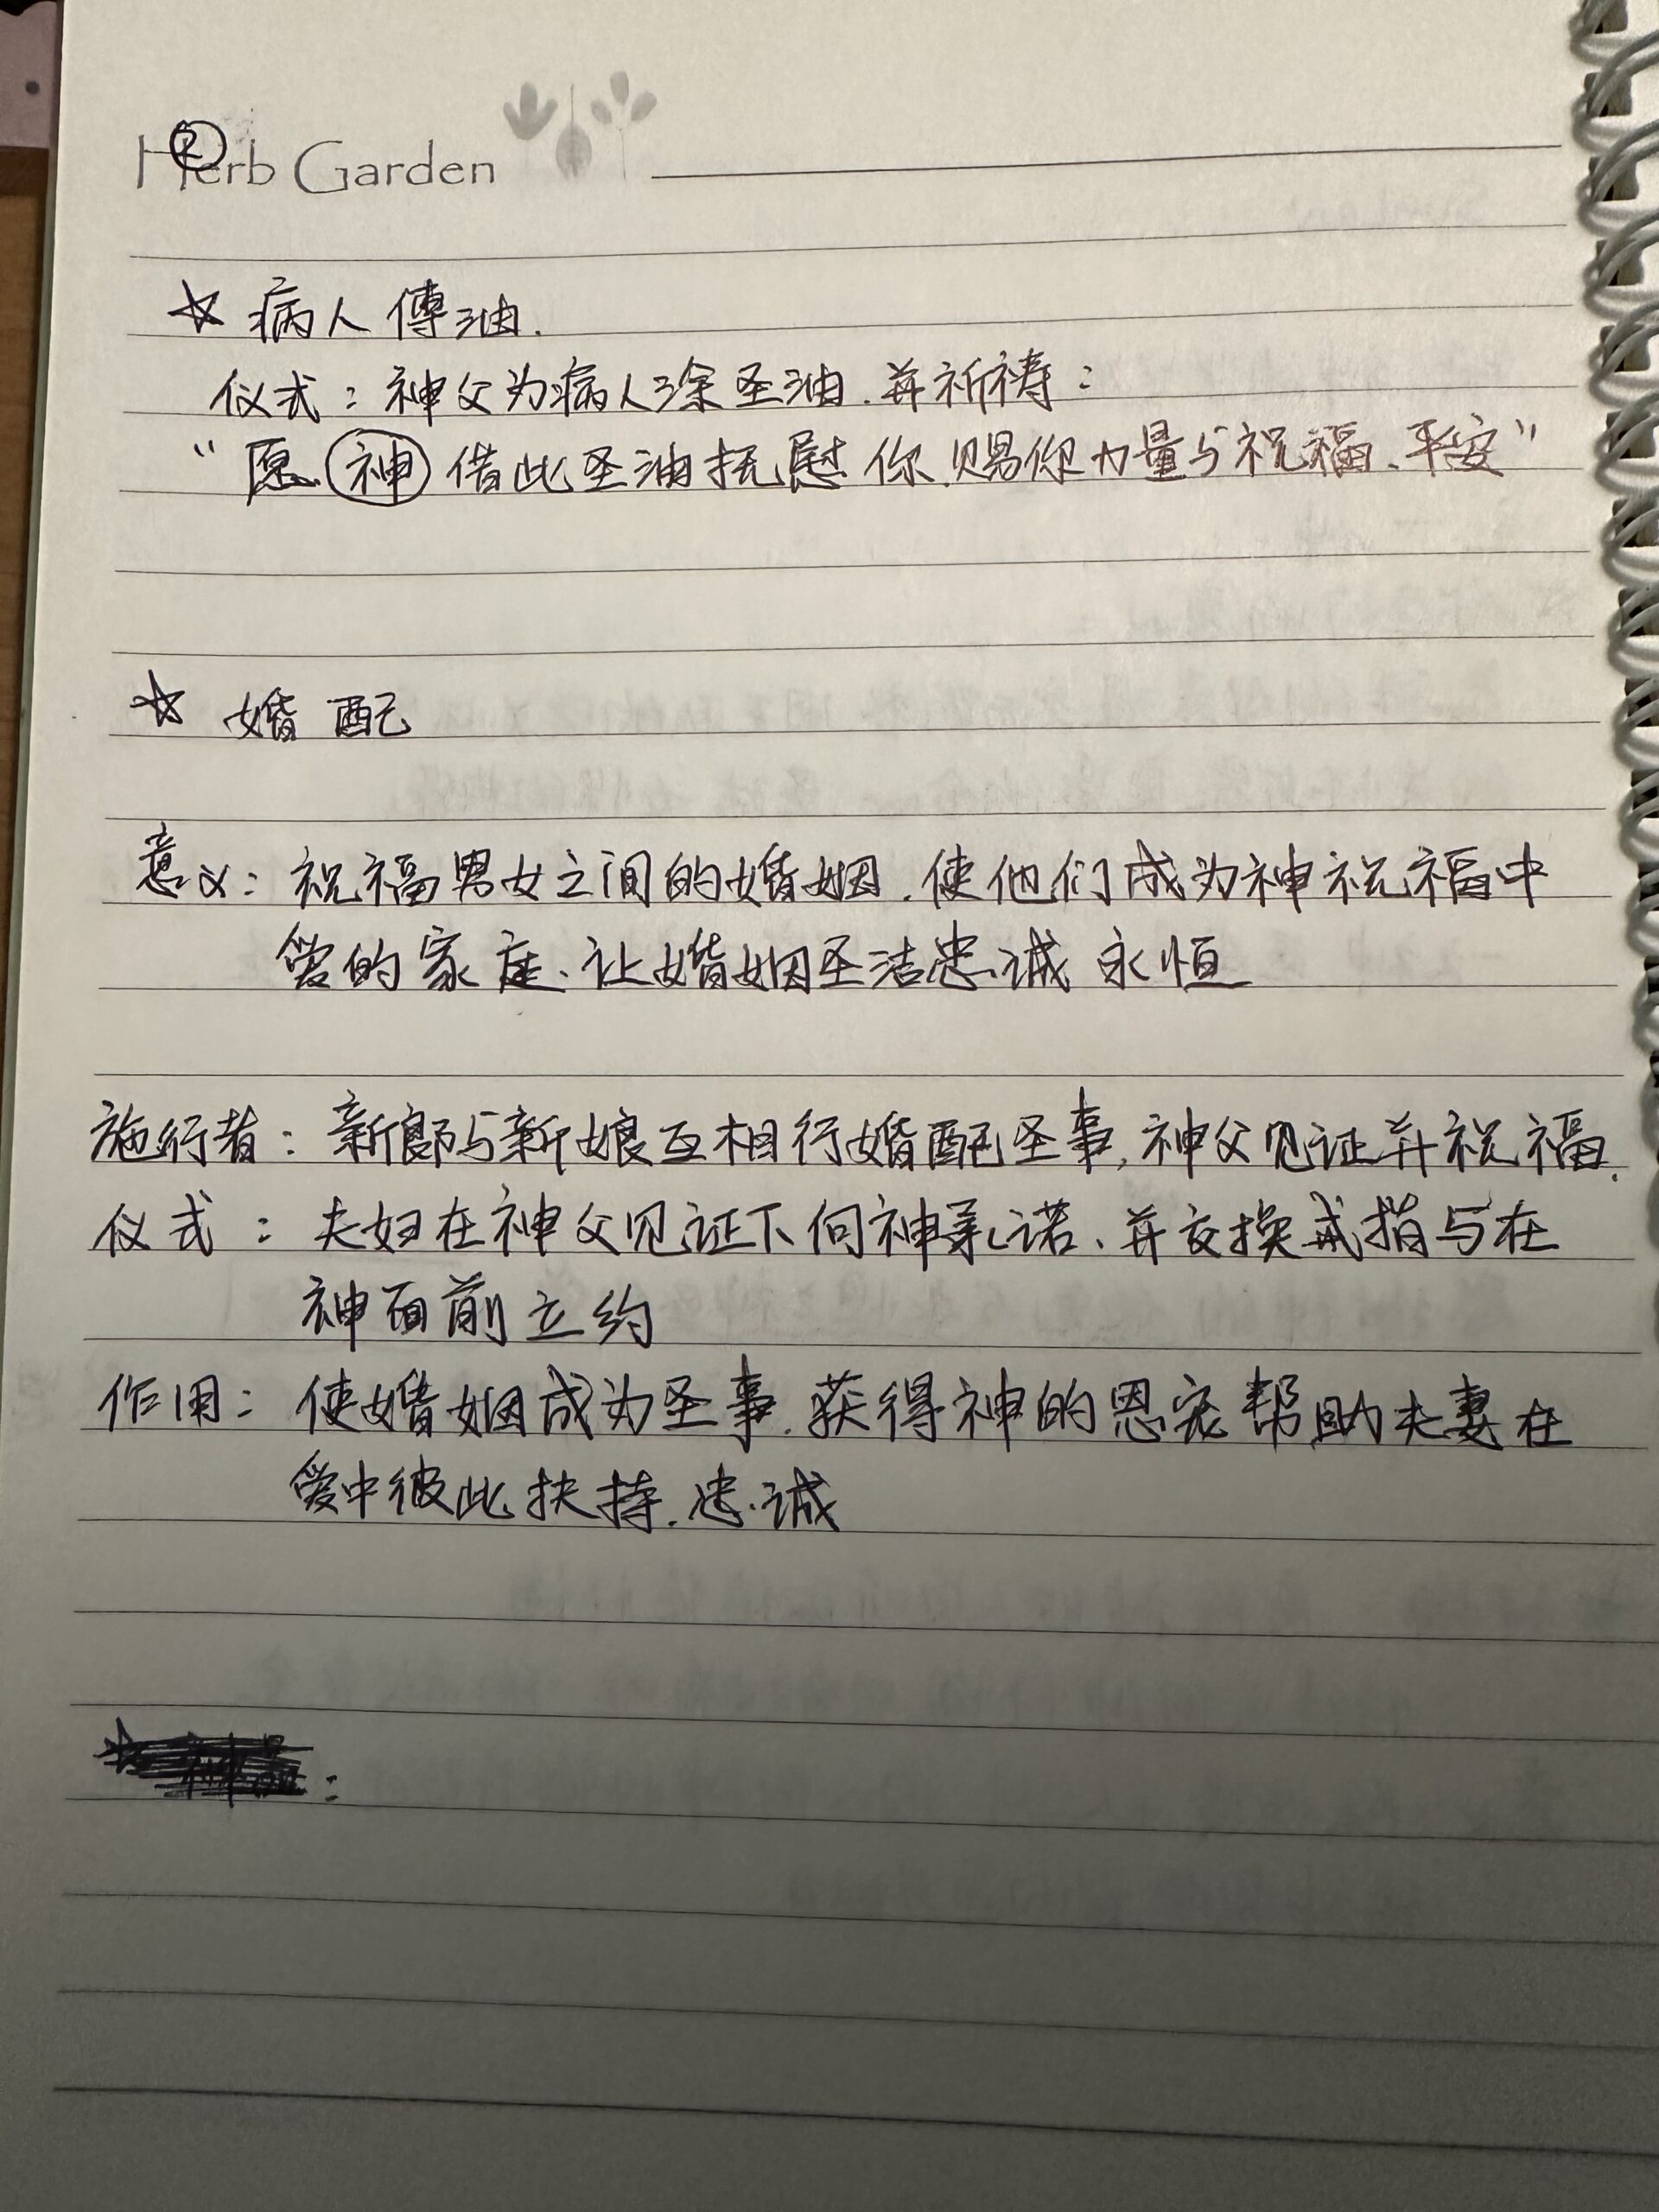 ②
Herb Garden
☆ 病人傅油.
仪式：神父为病人涂圣油.并祈祷：
“愿神借此圣油抚慰你.赐你力量与祝福、平安”
☆ 婚配
意义：祝福男女之间的婚姻.使他们成为神祝福中
爱的家庭、让婚姻圣洁忠诚永恒
施行者：新郎与新娘互相行婚配圣事,神父见证并祝福.
仪式：夫妇在神父见证下向神承诺、并交换戒指与在
神面前立约
作用：使婚姻成为圣事.获得神的恩宠帮助夫妻在
爱中彼此扶持.忠诚